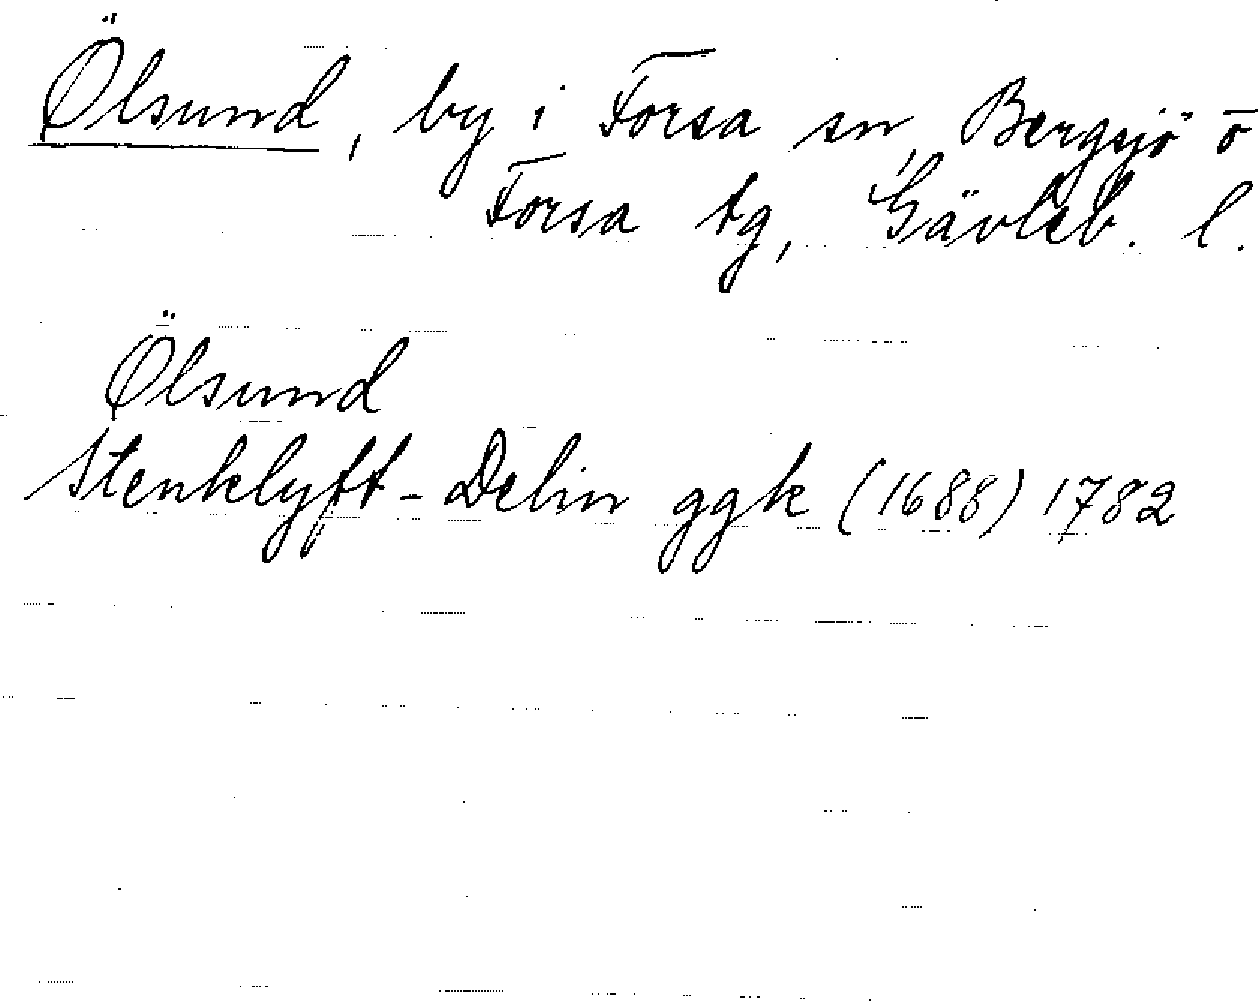 Ölsund, by i Forsa sn, Bergsjö o
Forsa tg, Gävleb. l.
Ölsund
Stenklyft-Delin ggk (1688) 1782